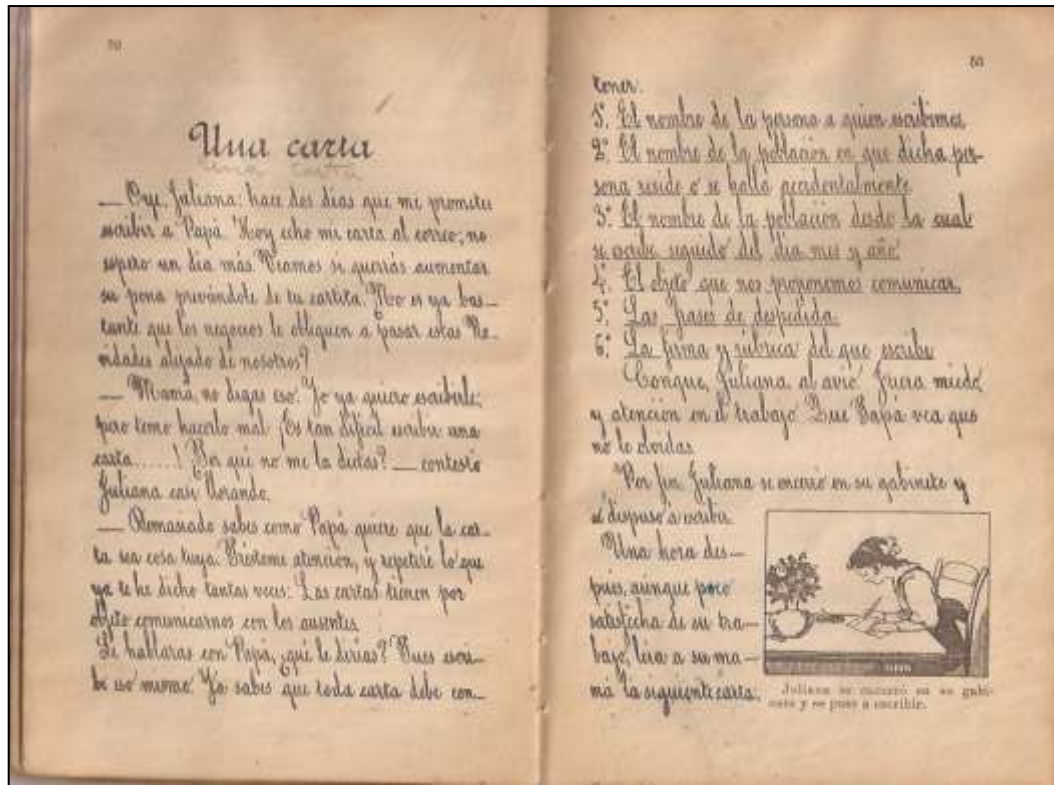 Una carta
una carta
— Oye, Juliana: hace dos dias que me prometes
escribir a Papá. Hoy echo mi carta al correo; no
espero un dia más. Veamos si querrás aumentar
su pena privándole de tu cartita. No es ya bas—
tante que los negocios le obliguen a pasar estas Na-
vidades alejado de nosotros?
— Mamá, no digas eso. Yo ya quiero escribirle;
pero temo hacerlo mal. ¡Es tan difícil escribir una
carta......! Por qué no me la dictas? — contestó
Juliana casi llorando.
— Demasiado sabes como Papá quiere que la car-
ta sea cosa tuya. Préstame atención, y repetiré lo que
ya te he dicho tantas veces: Las cartas tienen por
objeto comunicarnos con los ausentes.
Si hablaras con Papá, ¿qué le dirias? Pues escri-
be eso mismo. Ya sabes que toda carta debe con—
tener:
1.° El nombre de la persona a quien escribimos
2.° El nombre de la población en que dicha per-
sona reside o se halla accidentalmente.
3.° El nombre de la población desde la cual
se escribe seguido del dia mes y año.
4.° El objeto que nos proponemos comunicar.
5.° Las frases de despedida.
6.° La firma y rúbrica del que escribe
Conque, Juliana, al avio. Fuera miedo,
y atención en el trabajo. Que Papá vea que
no le olvidas.
Por fin Juliana se encerró en su gabinete y
se dispuso a escribir.
Una hora des—
pués, aunque poco
satisfecha de su tra—
bajo, leia a su ma—
má la siguiente carta:
Juliana se encerró en su gabi-
nete y se puso a escribir.